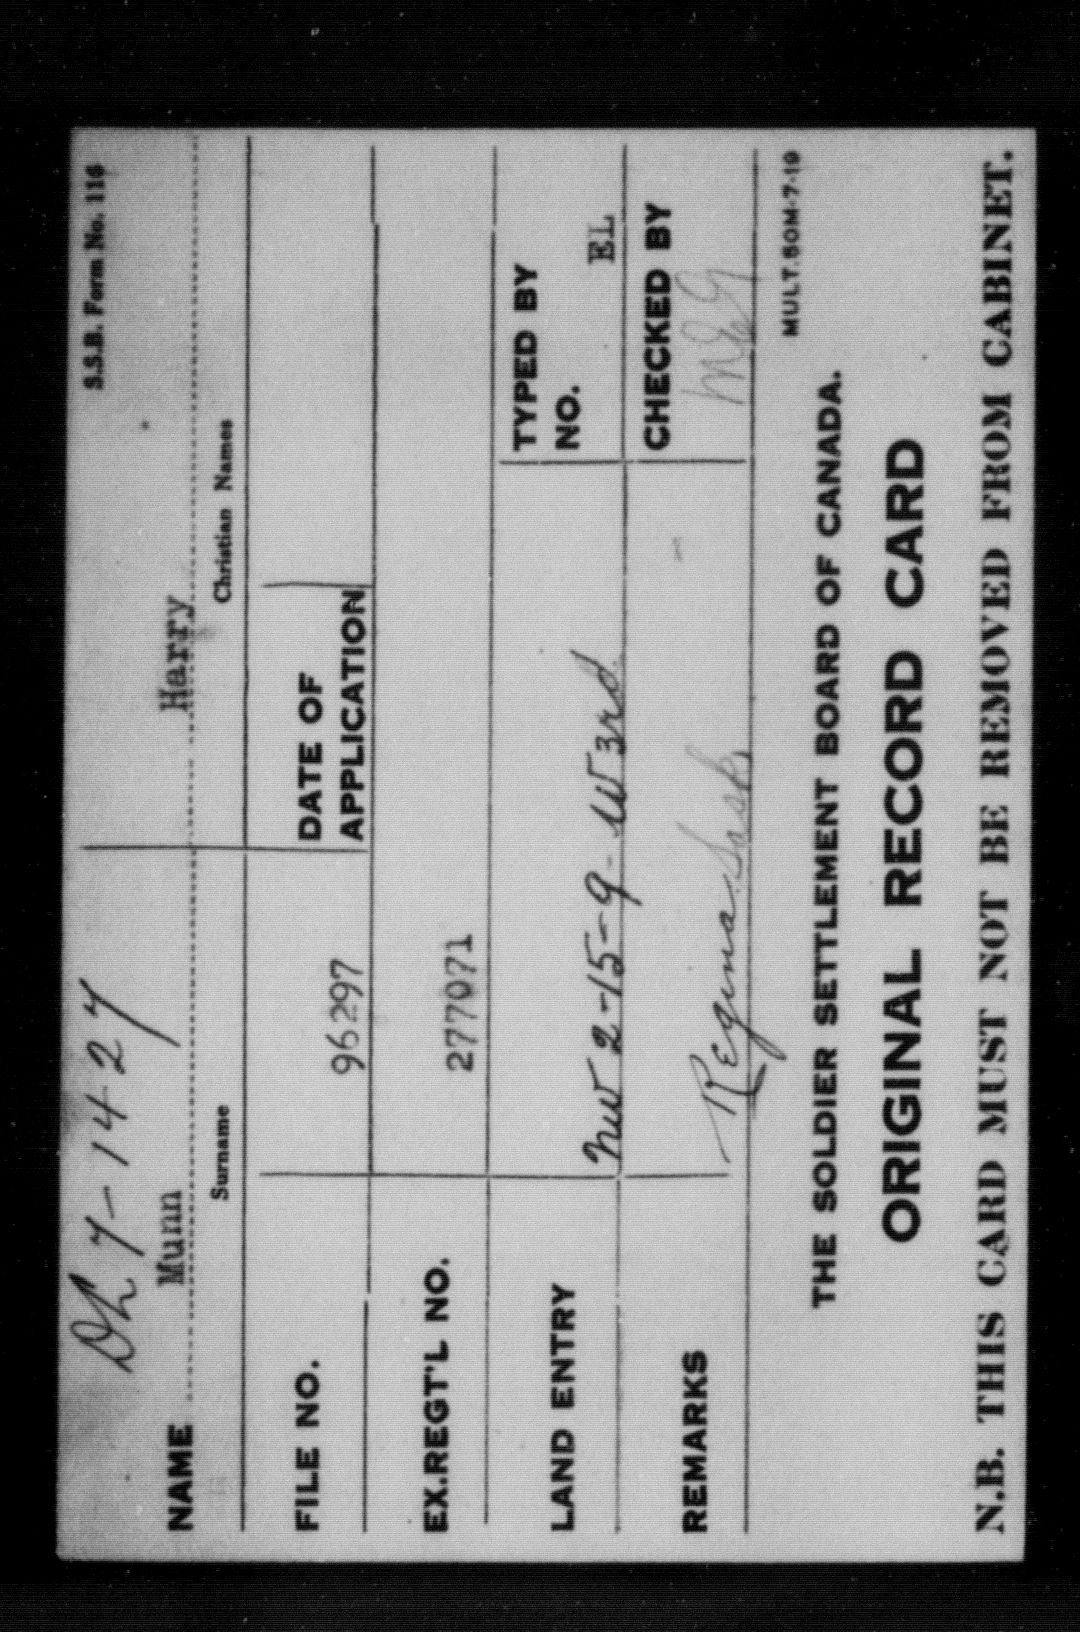 S.S.B. Form No. 116
DL 7-1427
NAME Munn Harry
Surname Christian Names
FILE NO. 96297 DATE OF APPLICATION
EX.REGT'L NO. 277071
LAND ENTRY NW 2-15-9-W 3rd
TYPED BY
NO. EL
REMARKS Regina. Sask.
CHECKED BY
MULT.50M-7-19
THE SOLDIER SETTLEMENT BOARD OF CANADA.
ORIGINAL RECORD CARD
N.B. THIS CARD MUST NOT BE REMOVED FROM CABINET.